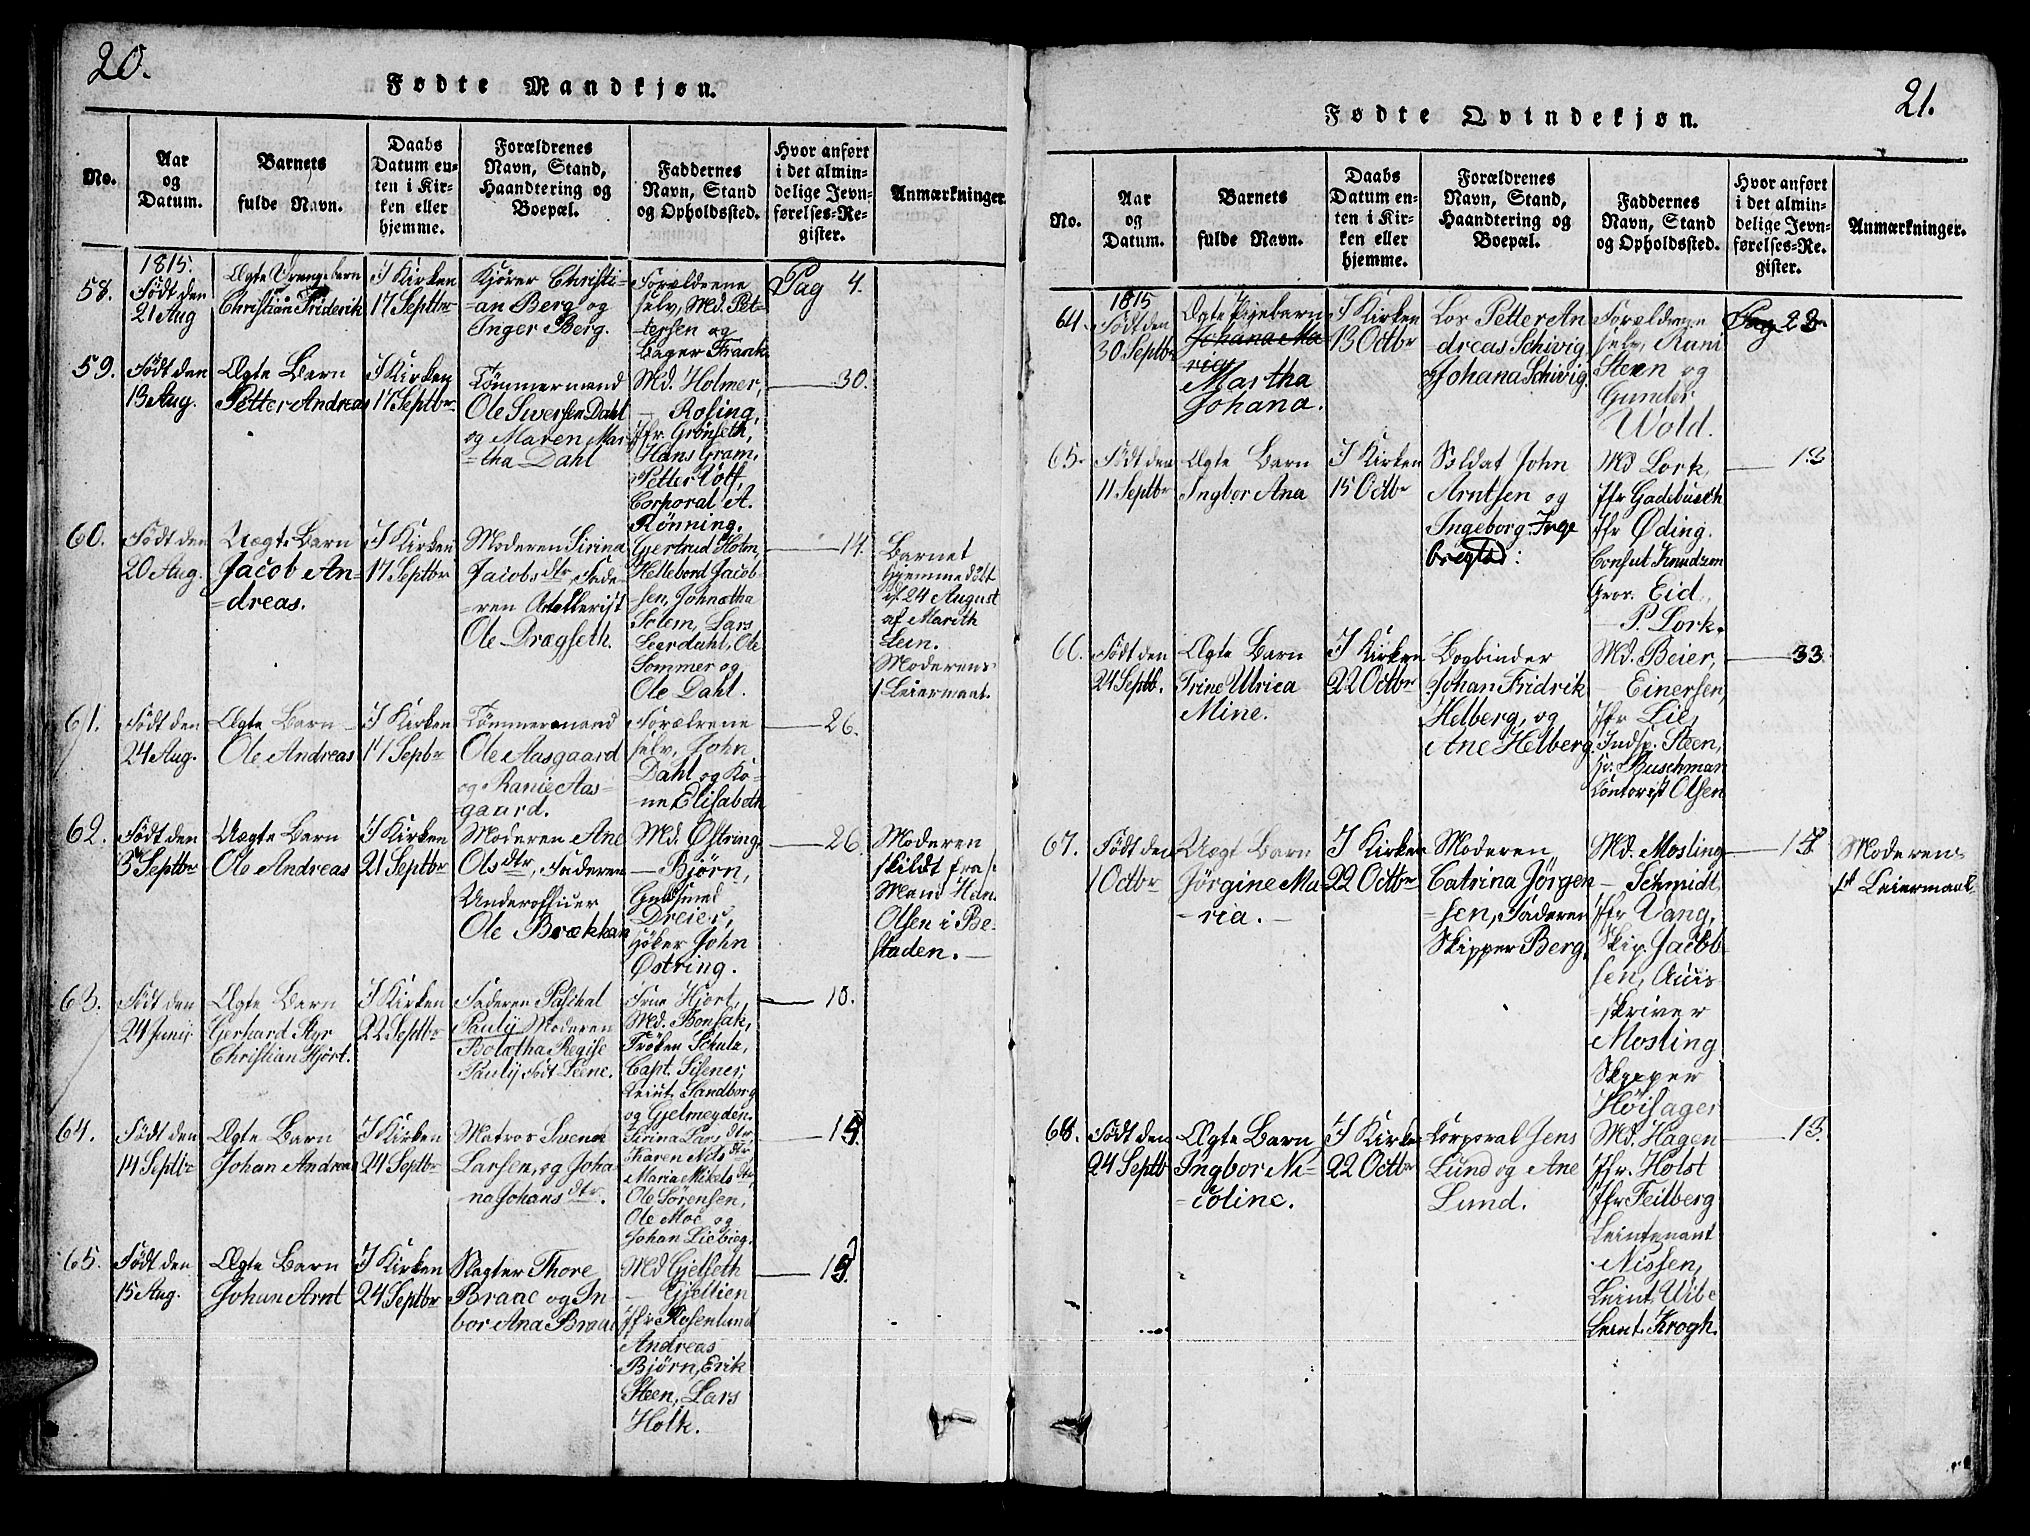 20.
Fødte Mandkjøn.
No.
Aar
og
Datum.
Barnets
fulde Navn.
Daabs
Datum en-
ten i Kir-
ken eller
hjemme.
Forældrenes
Navn, Stand,
Haandtering og
Boepæl.
Faddernes
Navn, Stand
og Opholdssted.
Hvor anført
i det almin-
delige Jevn-
førelses-Re-
gister.
Anmærkninger.
58.
1815.
Født den
21 Aug
Ægte Drengebarn
Christian Friderik
I Kirken
17 Septbr
Kjører Christi-
an Berg og
Inger Berg.
Forældrene
selv, Md. Pet-
tersen og
Bager Frank
Pag 4.
59.
Født den
13 Aug.
Ægte Barn
Petter Andreas
I Kirken
17 Septbr
Tømmermand
Ole Iversen Dahl
og Maren Mar-
tha Dahl
Md. Holmer,
— Roling,
Jfr. Grønseth,
Hans Gram,
Petter Toff,
Corporal A.
Rønning.
30.
60.
Født den
20 Aug.
Uægte Barn
Jacob An-
dreas.
I Kirken
17 Septbr
Moderen Sirina
Jacobs dtr, Fade-
ren Artillerist
Ole Dragseth.
Gertrud Holm,
Hellebord Jacob-
sen, Johnetha
Solem, Lars
Leerdahl, Ole
Sommer og
Ole Dahl.
14.
Barnet
hjemmedøbt
d. 24 August
af Marith
Lein.
Moderens
1 Leiermaal.
61.
Født den
24 Aug.
Ægte Barn
Ole Andreas
I Kirken
17 Septbr
Tømmermand
Ole Aasgaard
og Ranie Aas-
gaard.
Forælrene
selv, John
Dahl og Ko-
ne Elisabeth
26.
62.
Født den
3 Septbr
Uægte Barn
Ole Andreas
I Kirken
21 Septbr
Moderen Ane
Ols dtr, Faderen
Underofficer
Ole Brækkan
Md. Østring,
— Bjørn,
Guldsmed
Dreier,
Høker John
Østring.
26.
Moderen
skildt fra s.
Mand Hans
Olsen i Be-
staden.
63.
Født den
24 Junii
Ægte Barn
Gerhard Styr
Christian Hjort.
I Kirken
22 Septbr
Faderen Paschal
Paulÿ Moderen
Bolatha Regise
Paulÿ født Leene.
Frue Hjort,
Md. Bonsak,
Frøken Schulz,
Capt. Sisener,
Leint. Sandborg
og Gjelmeyden.
10.
64.
Født den
14 Septbr
Ægte Barn
Johan Andreas
I Kirken
24 Septbr
Matros Svend
Larsen, og Joha-
na Johans dtr.
Sirina Lars dtr,
Karen Nels dtr
Maria Mikels dtr,
Ole Sørensen,
Ole Moe og
Johan Liebieg.
65.
Født den
15 Aug.
Ægte Barn
Johan Arnt
I Kirken
24 Septbr
Slagter Thore
Braae og In-
bor Ana Braae
Md Gjelseth
— Gjellien
Jfr Rosenlund
Andreas
Bjørn, Erik
Steen, Lars
Holk.
21.
Fødte Qvindekjøn.
No.
Aar
og
Datum.
Barnets
fulde Navn.
Daabs
Datum en-
ten i Kir-
ken eller
hjemme.
Forældrenes
Navn, Stand,
Haandtering og
Boepæl.
Faddernes
Navn, Stand
og Opholdssted.
Hvor anført
i det almin-
delige Jevn-
førelses-Re-
gister.
Anmærkninger.
64.
1815
Født den
30 Septbr
Ægte Pigebarn
Johana Ma-
ria
Martha
Johana.
I Kirken
13 Octbr
Los Petter An
dreas Schivig
og Johana Schivig.
Forældrene
selv, Rani
Steen og
Gunder
Wold.
Pag 23
65.
Født den
11 Septbr
Ægte Barn
Ingbor Ana
I Kirken
15 Octbr
Soldat John
Arntsen og
Ingeborg Inge
bregtsd:
Md Lork,
Jfr Gadebusch
Jfr Øding.
Consul Knudzon
Gros. Eid,
— P. Lork.
13
66.
Født den
24 Septb.
Ægte Barn
Trine Ulrica
Mine.
I Kirken
22 Octbr
Bogbinder
Johan Fridrik
Helberg, og
Ane Helberg.
Md. Beier,
— Einersen,
Jfr Lie,
Indsp. Steen,
Hr. Buschman
Contorist Olsen
33
67.
Født den
1 Octbr
Uægt Barn
Jørgine Ma-
ria.
I Kirken
22 Octbr
Moderen
Catrina Jørgen-
sen, Faderen
Skipper Berg.
Md. Mosling
— Schmidt,
Jfr Vang,
Skip. Jacob-
sen, Avis-
skriver
Mosling
Skipper
Høisager
Moderens
1st Leiermaal.
68.
Født den
24 Septb
Ægte Barn
Ingbor Ni-
coline.
I Kirke
22 Octbr
Korporal Jens
Lund og Ane
Lund.
Md. Hagen
Jfr. Holst
Jfr Feilberg
Leintenant
Nissen,
Leint. Wibe
Leint. Krogh.
13.